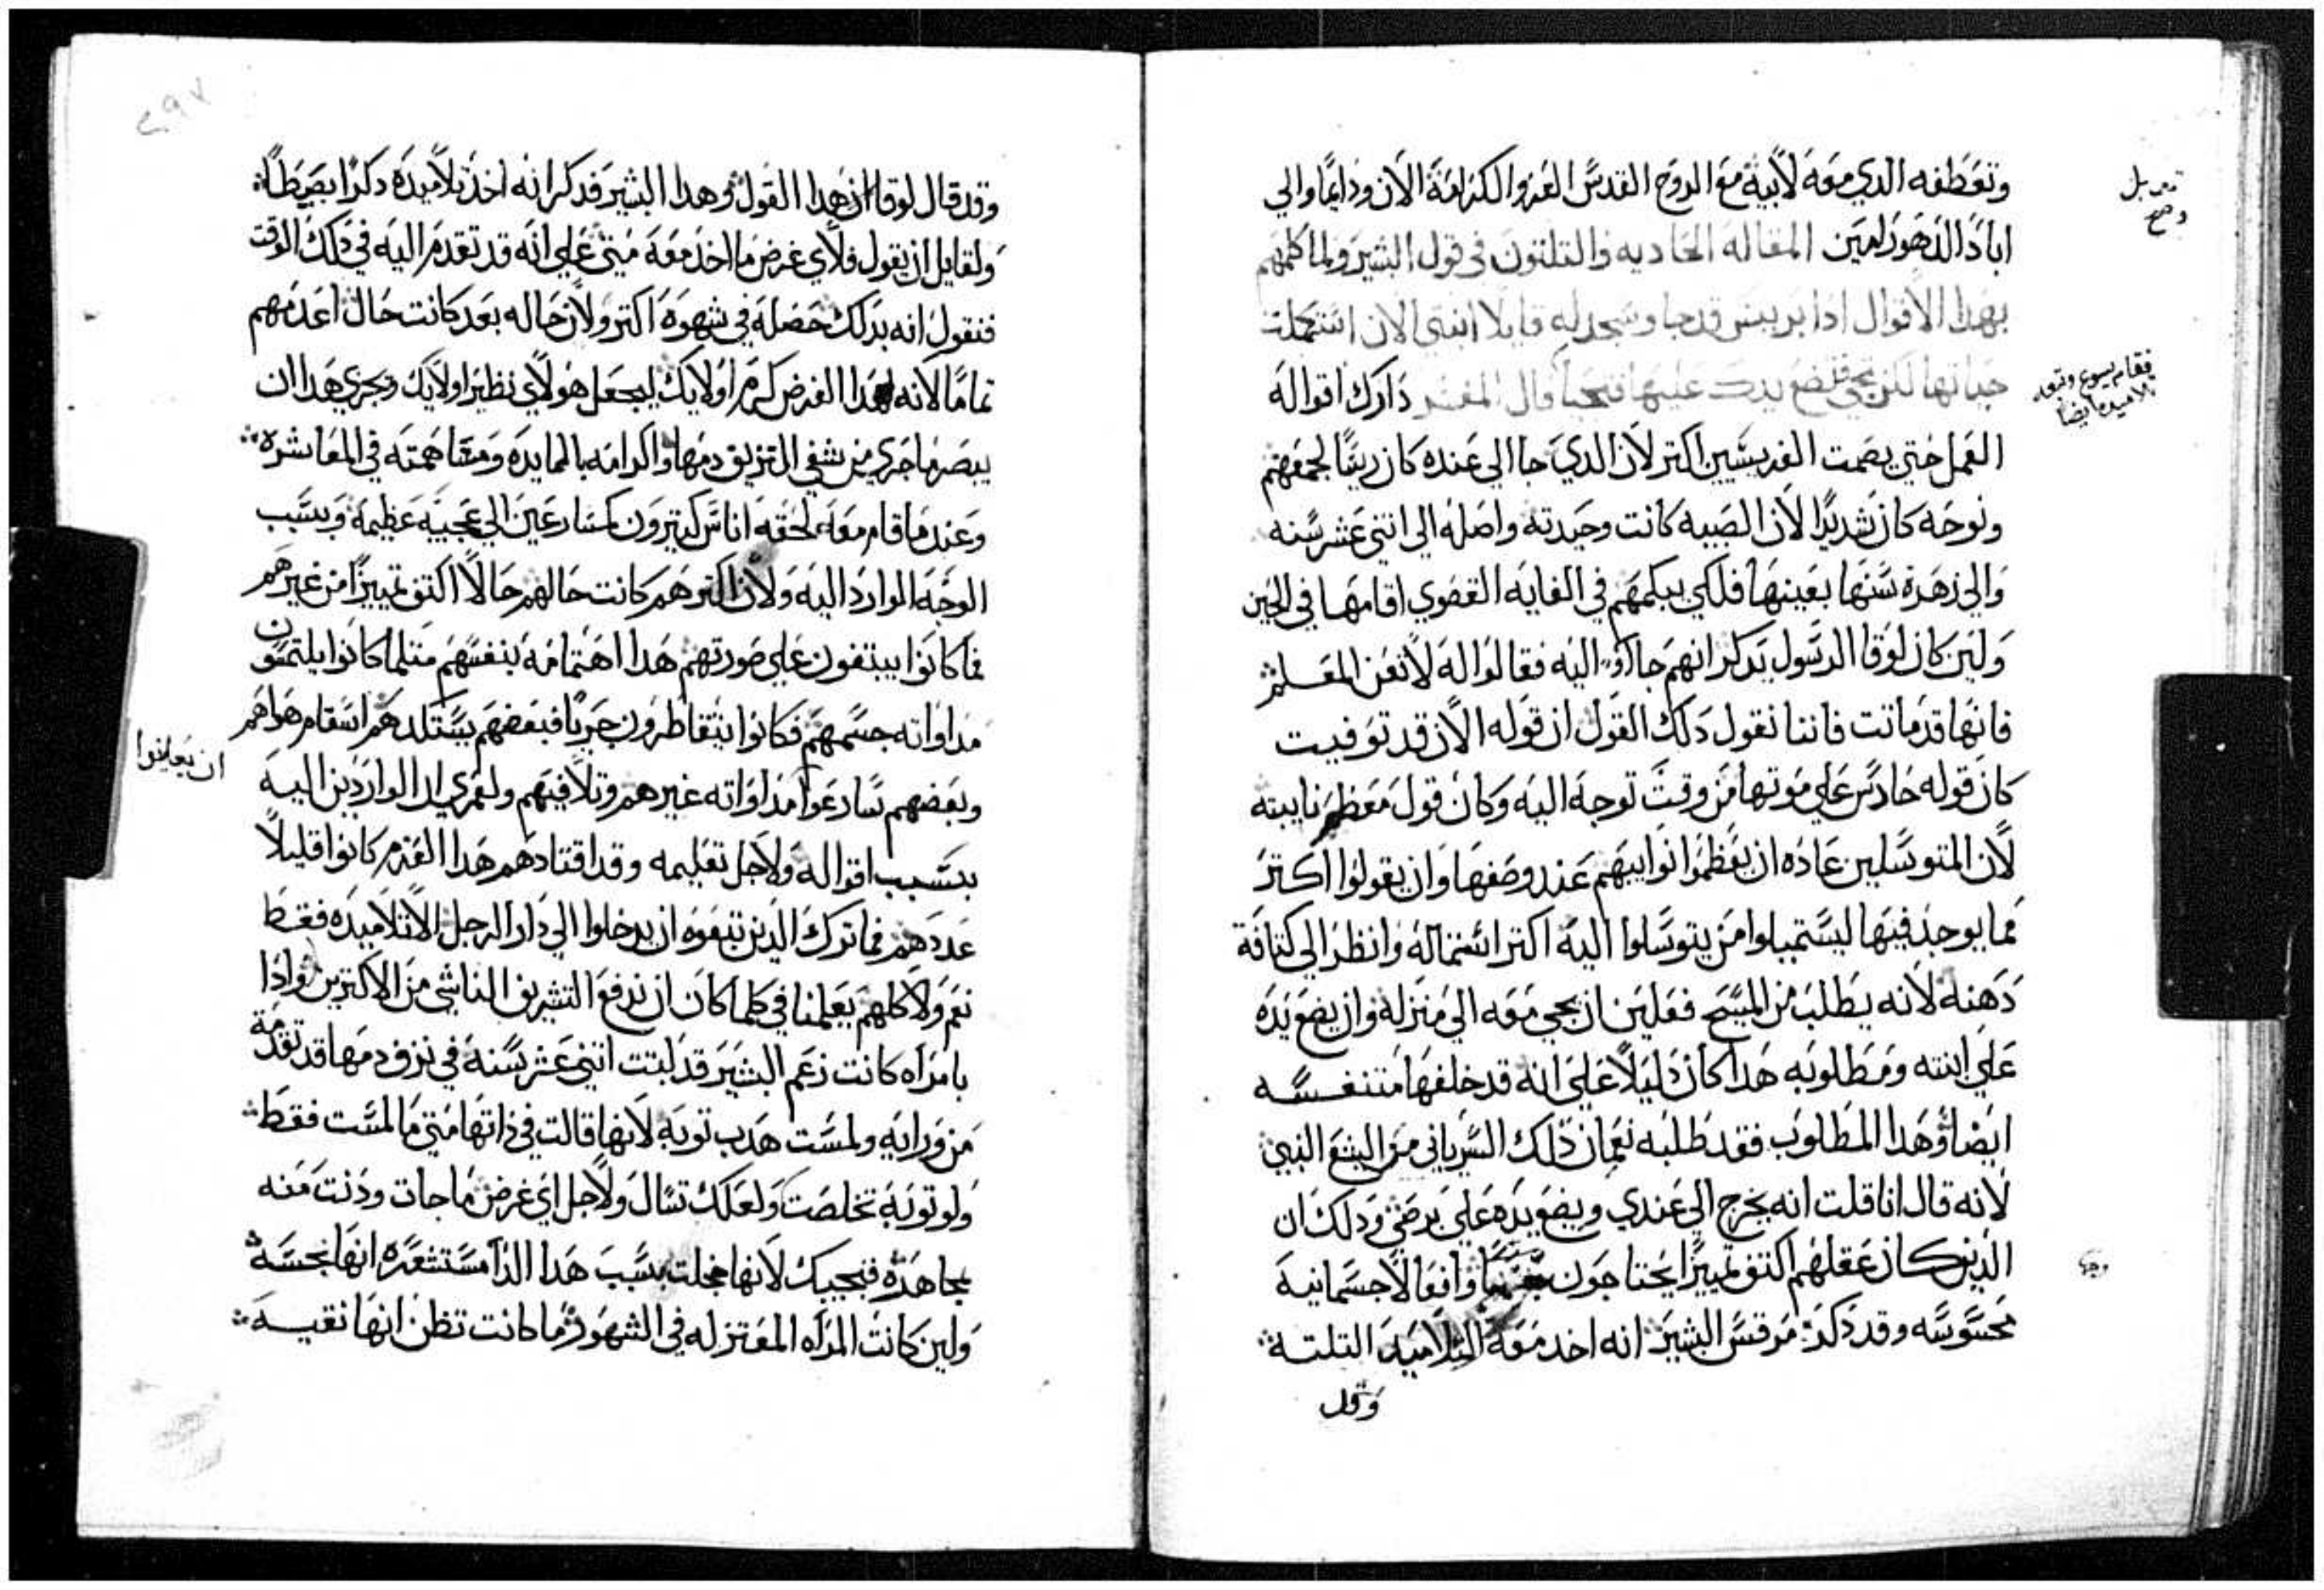 وتعطفه الدي معه لابيه مع الروح القدس العز والكرامة الان ودايما والي
اباد الدهور امين المقاله الحاديه والتلتون في قول البشير ولما كلمهم
بهدا الاقوال ادا برييس قد جا وسجد له قايلا ابنتي الان استكملت
حياتها لكن تجي فتضع يدك عليها فتحيا قال المفسر دارك اقواله
فقام يسوع وتبعه
تلاميده ايضا
العمل حتي يصمت الفريسيين اكتر لان الدي جا الي عنده كان ريسا لجمعهم
ونوحه كان شديدا لان الصبيه كانت وحيدته واصله الي اتني عشر سنه
والي زهرة سنها بعينها فلكي يبكمهم في الغايه القصوي اقامها في الحين
ولين كان لوقا الرسول يدكر انهم جااوا اليه فقالوا له لا تعن المعلم
فانها قد ماتت فاننا نقول دلك القول ان قوله الان قد توفيت
كان قوله حادس علي موتها من وقت توجه اليه وكان قول معظم نايبته
لان المتوسلين عاده ان يعظموا نوايبهم عند وصفها وان يقولوا اكتر
مما يوجد فيها ليستميلوا من يتوسلوا اليه اكتر استمالة وانظر الي كتافة
دهنه لانه يطلب من المسيح فعلين ان يجي معه الي منزله وان يضع يده
علي ابنته ومطلوبه هدا كان دليلا علي انه قد خلفها متنفسه
ايضا وهدا المطلوب فقد طلبه نعمان دلك السرياني من اليشع النبي
لانه قال انا قلت انه يخرج الي عندي ويضع يده علي برصي ودلك ان
الدين كان عقلهم اكتف تمييزا يحتاجون وافعالا جسمانيه
محسوسه وقد دكر مرقس البشير انه اخد معه التلاميد التلتة
وقد
وقد قال لوقا ان هدا القول وهدا البشير فدكر انه اخد تلاميده دكرا بصيطا
ولقايل ان يقول فلاي غرض ما اخد معه متي علي انه قد تقدم اليه في دلك الوقت
فنقول انه بدلك حصله في شهوه اكتر ولان حاله بعد كانت حال اعدمهم
تماما لانه لهدا الغرض كرم اولايك ليجعل هولاي نظير اولايك وبجري هدا ان
يبصر ما جري من شفي النزيق دمها والكرامه بالمايده ومساهمته في المعاشره
وعند ما قام معه لحقه اناس كتيرون كمسارعين الي عجيبه عظيمة وبسبب
الوجه الوارد اليه ولان اكترهم كانت حالهم حالا اكتف تمييزا من غيرهم
فما كانوا يبتغون علي صورتهم هدا اهتمامه بنفسهم متلما كانوا يلتمسون
مداواته جسمهم فكانوا يتقاطرون جريا فبعضهم يستلدهم اسقام هواهم
ان يعاينوا
وبعضهم تسارعوا مداواته غيرهم وتلافيهم ولعمري ان الواردين اليه
بسبب اقواله ولاجل تعليمه وقد اقتادهم هدا العزم كانوا قليلا
عددهم فما ترك الدين تبعوه ان يدخلوا الي دار الرجل الا تلاميده فقط
نعم ولا كلهم يعلمنا في كلما كان ان ندفع التشريف الناشي من الاكترين وادا
بامراه كانت زعم البشير قد لبتت اتني عشر سنة في نزف دمها قد تقدمة
من ورايه ولمست هدب توبه لانها قالت في داتها متي ما لمست فقط
ولو توبه تخلصت ولعلك تسال ولاجل اي غرض ما جات ودنت منه
بجاهده فنجيبك لانها خجلت بسبب هدا الدا مستشعره انها نجسه
ولين كانت المراه المعتزله في الشهور ما كانت تظن انها نقيه